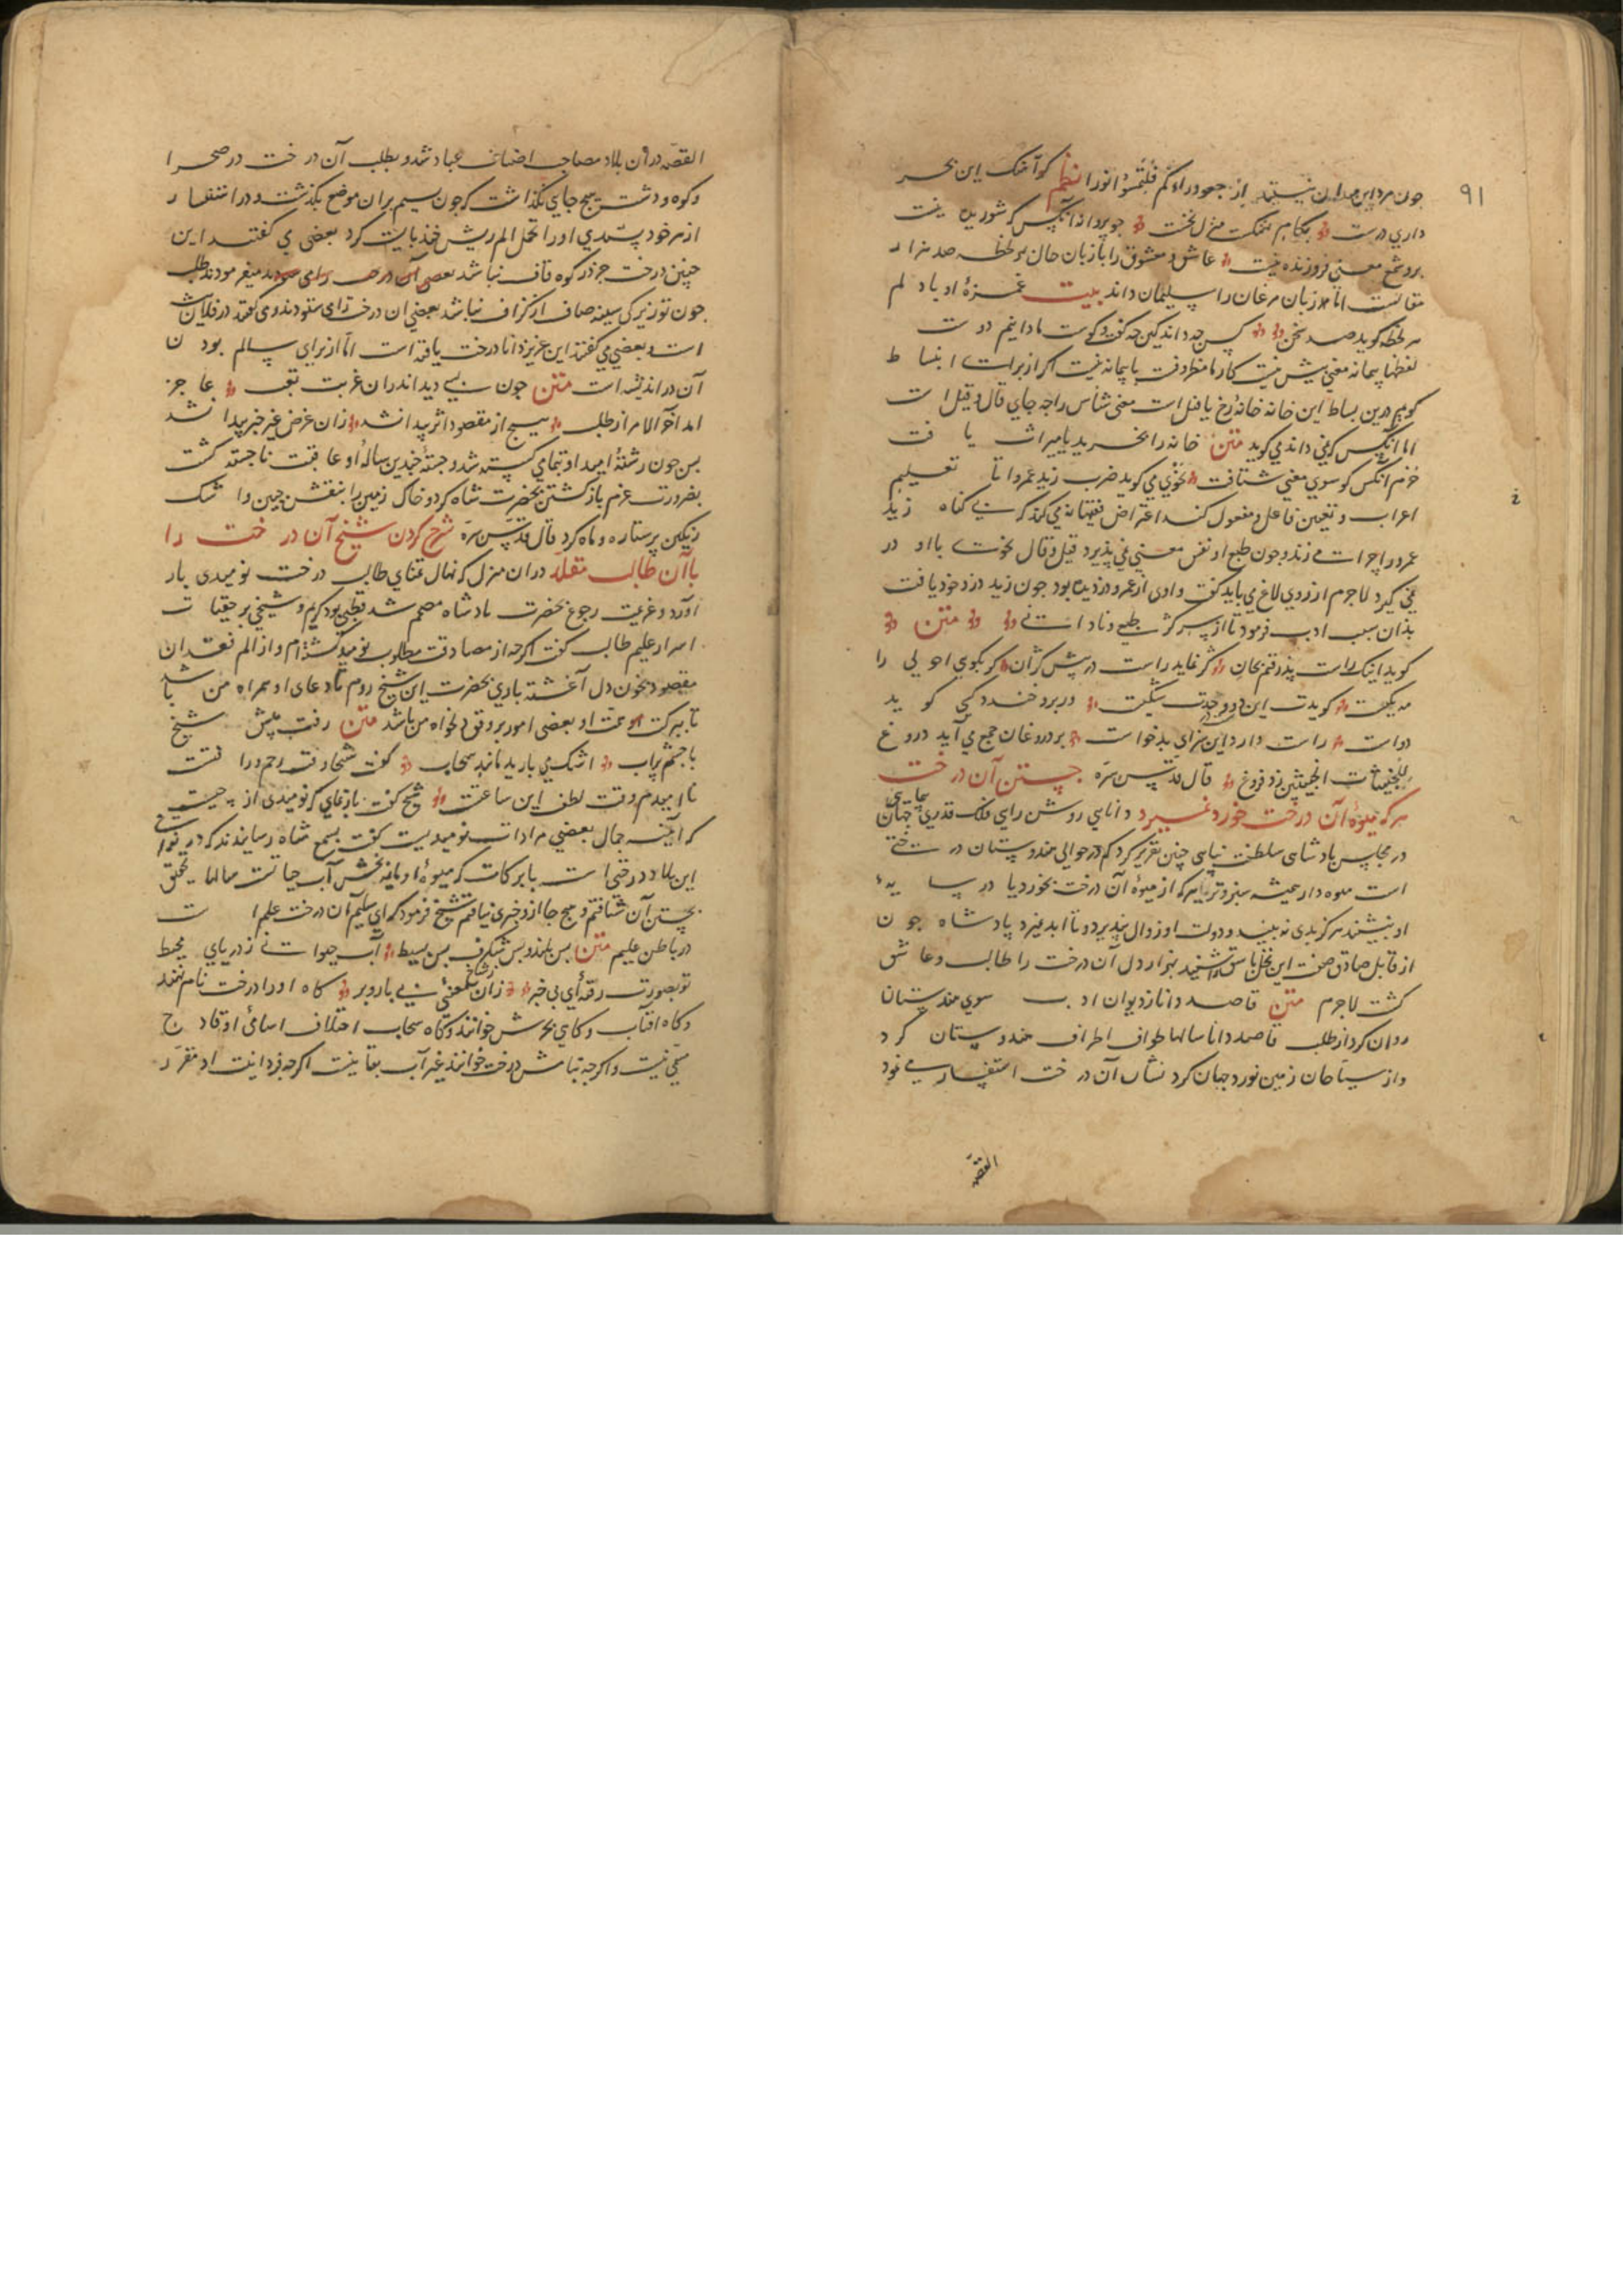 ٩١
چون مرد این میدان نیستید از جعوا وراءکم فالتمسوا نورا نظم کو آهنک این بحر
داری درست بکام نهنکت منزل نخست چو پروانه آنکس که شوریده نیست
بر و شمع معنی فروزنده نیست عاشق و معشوق را با زبان حال هر لحظه صد هزار
مقالتست اما زبان مرغان را سلیمان داند بیت غمزهٔ او با دلم
هر لحظه کوید صد سخن کس چه داند کین چه کفت و کوست ما دانیم دوست
لفظها پیمانه معنی بیش نیست کار ما مظروفست با پیمانه نیست اکر از برای انبساط
کویم درین بساط این خانه خانهٔ رخ یا فیل است معنی شناس را چه جای قال و قیل است
اما آنکس که نمی داند می کوید متن خانه را بخرید یا میراث یافت
خرم آنکس کو سوی معنی شتافت نحوی می کوید ضرب زید عمروا تا تعلیم
اعراب و تعیین فاعل و مفعول کند اعتراض فقیهانه می کند که بی کناه زید
عمرو را چرا می زند و چون طبع او نفس معنی نمی پذیرد قیل و قال نحوست با او در
نمی کیرد لاجرم از روی لاغ می باید کفت واوی از عمرو دزدیده بود چون زید دزد خود یافت
بدان سبب ادب فرمود تا از سر کژ طبعی و نادانی متن
کوید اینک راست پذرفتم بجان کژ نماید راست در پیش کژان کر بکوی احولی را
مه یکیست کویدت این دوست و در وحدت شکیست ور برو خندد کسی کوید
دواست راست دارد این سزای بدخواست بر دروغان جمع می آید دروغ
للخبیثات الخبیثین زد فروغ قال قدس سره جستن آن درخت
هر که میوهٔ آن درخت خورد نمیرد دانایی روشن رایی فلک قدری جهان
در مجلس پادشاهی سلطنت پناهی چنین تقریر کرد که در حوالی هندوستان درختی
است میوه دار همیشه سبز و تر هر که از میوهٔ آن درخت بخورد یا در سایهٔ
او بنشیند هرکز بدی نه بیند و دولت او زوال نپذیرد و تا ابد نمیرد پادشاه چون
از قایل صادق صفت این نخل باسق شنید بهزار دل آن درخت را طالب و عاشق
کشت لاجرم متن قاصد دانا ز دیوان ادب سوی هندستان
روان کرد از طلب قاصد دانا سالها طواف اطراف هندوستان کرد
و از سیاحان زمین نورد جهان کرد نشان آن درخت استفسار می نمود
القصه
القصه در آن بلاد مصاحب اصناف عباد شد و بطلب آن درخت در صحرا
و کوه و دشت هیچ جای نکذاشت که چون نسیم بران موضع بکذشت و در استفسار
از هر خود پسندی او را تحمل الم ریش خند بایست کرد بعضی می کفتند این
چنین درخت جز در کوه قاف نباشد بعضی آن درخت را می ستودند میفرمودند طلب
چون تو زیرکی سینه صاف از کزاف نباشد بعضی آن درخت را می ستودند و می کفتند در فلان
است و بعضی می کفتند این عزیز دانا درخت یافته است اما از برای سالم بودن
آن در اندیشه است متن چون بسی دید اندران غربت تعب عاجز
امد آخر الامر از طلب هیچ از مقصود اثر پیدا نشد زان غرض غیر خبر پیدا نشد
پس چون رشتهٔ امید او بتمامی کسسته شد و جستهٔ چندین سالهٔ او عاقبت ناجسته کشت
بضرورت عزم بازکشتن بحضرت شاه کرد و خاک زمین را بنقش جبین و اشک
رنکین پر ستاره و ماه کرد قال قدس سره شرح کردن شیخ آن درخت را
با آن طالب مقلد دران منزل که نهال تمنای طالب درخت نومیدی بار
آورد و عزیمت رجوع بحضرت پادشاه مصمم شد قطبی بود کریم و شیخی بر حقیقات
اسرار علیم طالب کفت اکرچه از مصادقت مطلوب نومید کشته‌ام و از الم فقدان
مقصود بخون دل آغشته باری بحضرت این شیخ روم تا دعای او همراه من باشد
تا ببرکت همت او بعضی امور بر وفق دلخواه من باشد متن رفت پیش شیخ
با چشم پر آب اشک می بارید مانند سحاب کفت شیخا وقت رحم و رافتست
ناامیدم وقت لطف این ساعتست شیخ کفت باز نمای که نومیدی از چیست
که آینه جمال بعضی مرادات نومیدیست کفت بسمع شاه رسانیدند که در نواحی
این بلاد درختی است با برکات که میوهٔ او مایه بخش آب حیات است سالها بتحقیق
بجستن آن شتافتم و هیچ جا از و خبری نیافتم شیخ فرمود که ای سلیم آن درخت علم است
در باطن علیم متن بس بلند و بس شکرف بس بسیط آب حیوانی ز دریای محیط
تو بصورت رفتهٔ ای بی خبر زان ز شاخ معنیی بی بار و بر کاه او را درخت نام نهند
و کاه آفتاب و کاهی بحرش خوانند و کاه سحاب اختلاف اسامی او قادح
مسمی نیست و اکرچه بنامش درخت خوانند غیر آب بقا نیست اکرچه فردانیت او مقرر